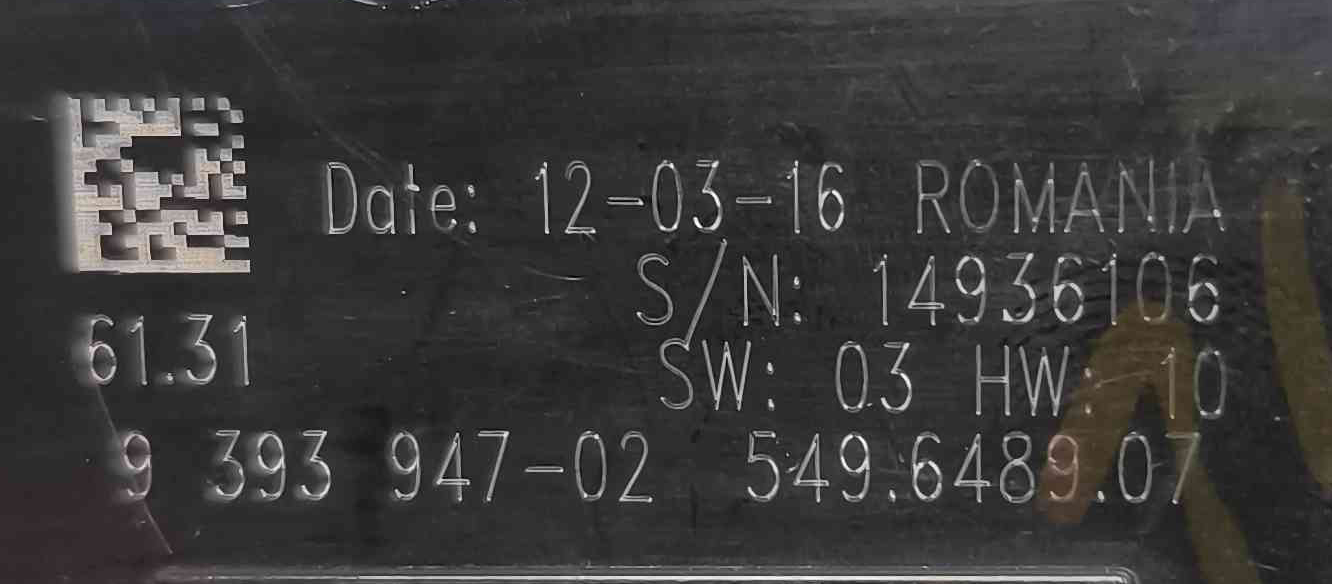 Date: 12-03-16 ROMANIA
S/N: 14936106
61.31 SW: 03 HW: 10
9 393 947-02 549.6489.07